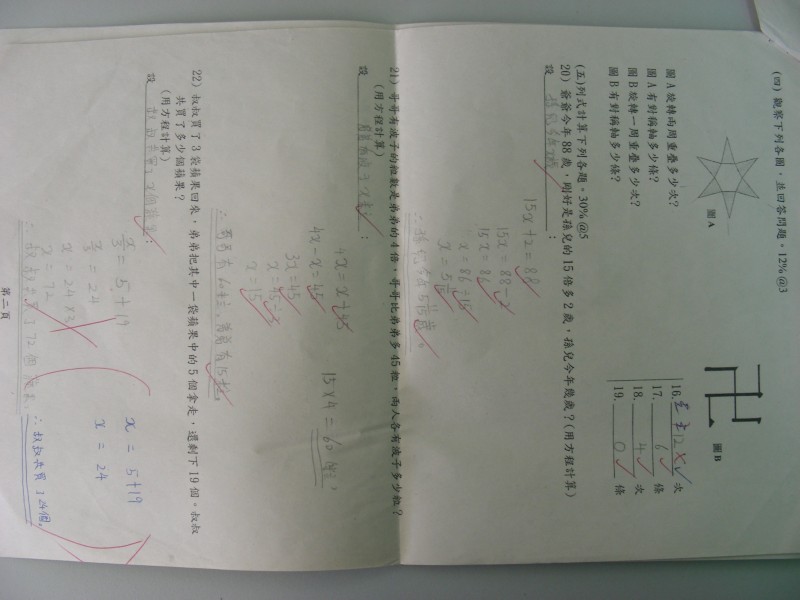 (四) 觀察下列各圖，並回答問題。12%@3
圖A
圖B
圖A旋轉兩周重疊多少次？
圖A有對稱軸多少條？
圖B旋轉一周重疊多少次？
圖B有對稱軸多少條？
16. 12 次
17. 6 條
18. 4 次
19. 0 條
(五)列式計算下列各題。30%@5
20) 爺爺今年88歲，剛好是孫兒的15倍多2歲，孫兒今年幾歲？(用方程計算)
設
：
15x+2=88
15x=88-2
15x=86
x=86÷15
21) 哥哥有波子的粒數是弟弟的4倍，哥哥比弟弟多45粒，兩人各有波子多少粒？
(用方程計算)
設
：
4x=x+45
4x-x=45
3x=45
x=45÷3
x=15
15×4=60
22) 叔叔買了3袋蘋果回來，弟弟把其中一袋蘋果中的5個拿走，還剩下19個。叔叔
共買了多少個蘋果？
(用方程計算)
設
：
x/3=5+19
x/3=24
x=24×3
x=72
x=5+19
x=24
∴叔叔共買了24個。
第二頁